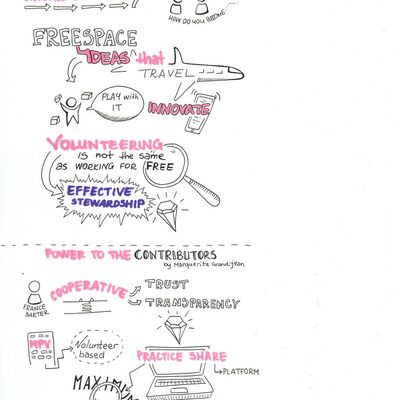 HOW DO YOU BECOME
FREESPACE
IDEAS that
TRAVEL
PLAY with
IT
INNOVATE
VOLUNTEERING
is not the same
as WORKING FOR FREE
EFFECTIVE
STEWARDSHIP
POWER TO THE CONTRIBUTORS
by Marguerite Grandjean
COOPERATIVE
TRUST
TRANSPARENCY
FRANCE
BARTER
MPV
Volunteer
based
PRACTICE SHARE
PLATFORM